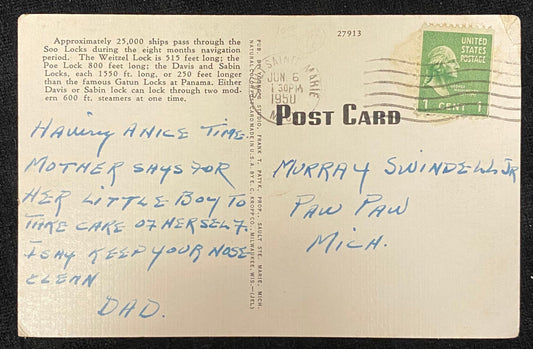 Approximately 25,000 ships pass through the
Soo Locks during the eight months navigation
period. The Weitzel Lock is 515 feet long; the
Poe Lock 800 feet long; the Davis and Sabin
Locks, each 1550 ft. long, or 250 feet longer
than the famous Gatun Locks at Panama. Either
Davis or Sabin lock can lock through two mod-
ern 600 ft. steamers at one time.
HAVING A NICE TIME
MOTHER SAYS FOR
HER LITTLE BOY TO
TAKE CARE OF HERSELF.
I SAY KEEP YOUR NOSE
CLEAN
DAD.
PUB. BY YOUNG'S STUDIO, FRANK T. PATTK, PROP., SAULT STE. MARIE, MICH.
NATURAL COLOR CARD MADE IN U.S.A. BY E. C. KROPP CO., MILWAUKEE, WIS.—(JEL)
27913
SAULT STE. MARIE
JUN 6
1 30PM
1950
UNITED
STATES
POSTAGE
1 CENT 1
POST CARD
MURRAY SWINDELL JR
PAW PAW
MICH.